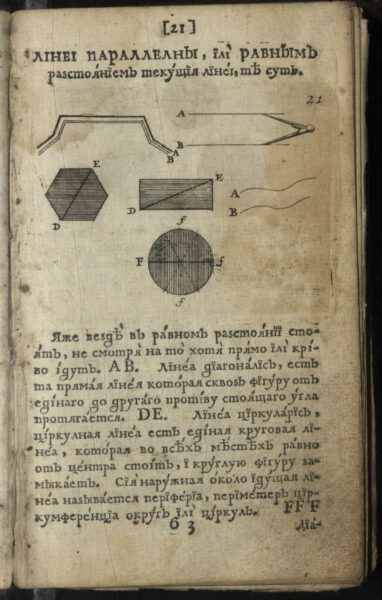 [21]
ЛІНЕІ ПАРАЛЛЕЛНЫ, ілі̀ РАВНЫМЪ
расстоя́нїемъ теку́щїѧ лїнеі, тѣ суть.
21
A
B
A
B
E
D
E
D
A
B
f
F
f
f
Яже вездѣ̀ въ ра́вномъ разстоя́нїі сто-
я́тъ, не смотря̀ на то̀ хотя̀ пря́мо ілі̀ крі́-
во іду́тъ. AB. Лі́неа дїагона́лісъ, есть
та пряма́я лі́нея кото́рая сквозь фїгу́ру отъ
едїнаго до друга́го проті́ву стоя́щаго у́гла
протяга́ется. DE. Лі́неа ці́ркула́рїсъ,
ці́ркулная лі́неа есть едіная круговая лі́-
неа, кото́рая во всѣ́хъ мѣ́стѣхъ ра́вно
отъ це́нтра стоі́тъ, і кру́глую фїгу́ру за-
мыка́етъ. Сїя̀ нару́жная о́коло їду́щая лі́-
неа называ́ется періфе́рїа, періме́теръ ці́р-
кумфере́нцїа окру́гъ ілі̀ ці́ркуль. FFF
б 3
Дїа-